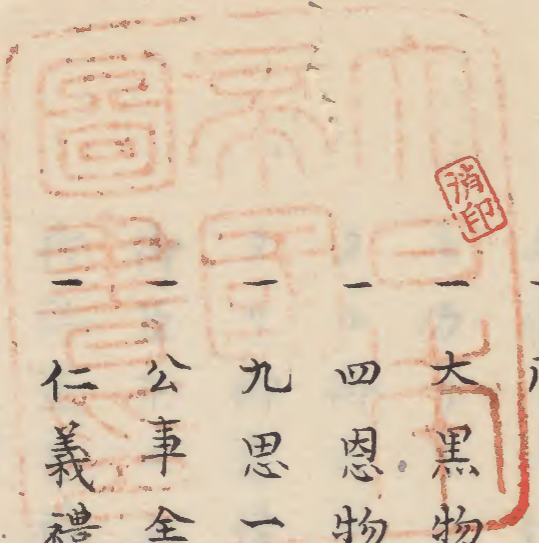 消印
一大黒物
一四恩物
一九思一
一公事全
一仁義禮